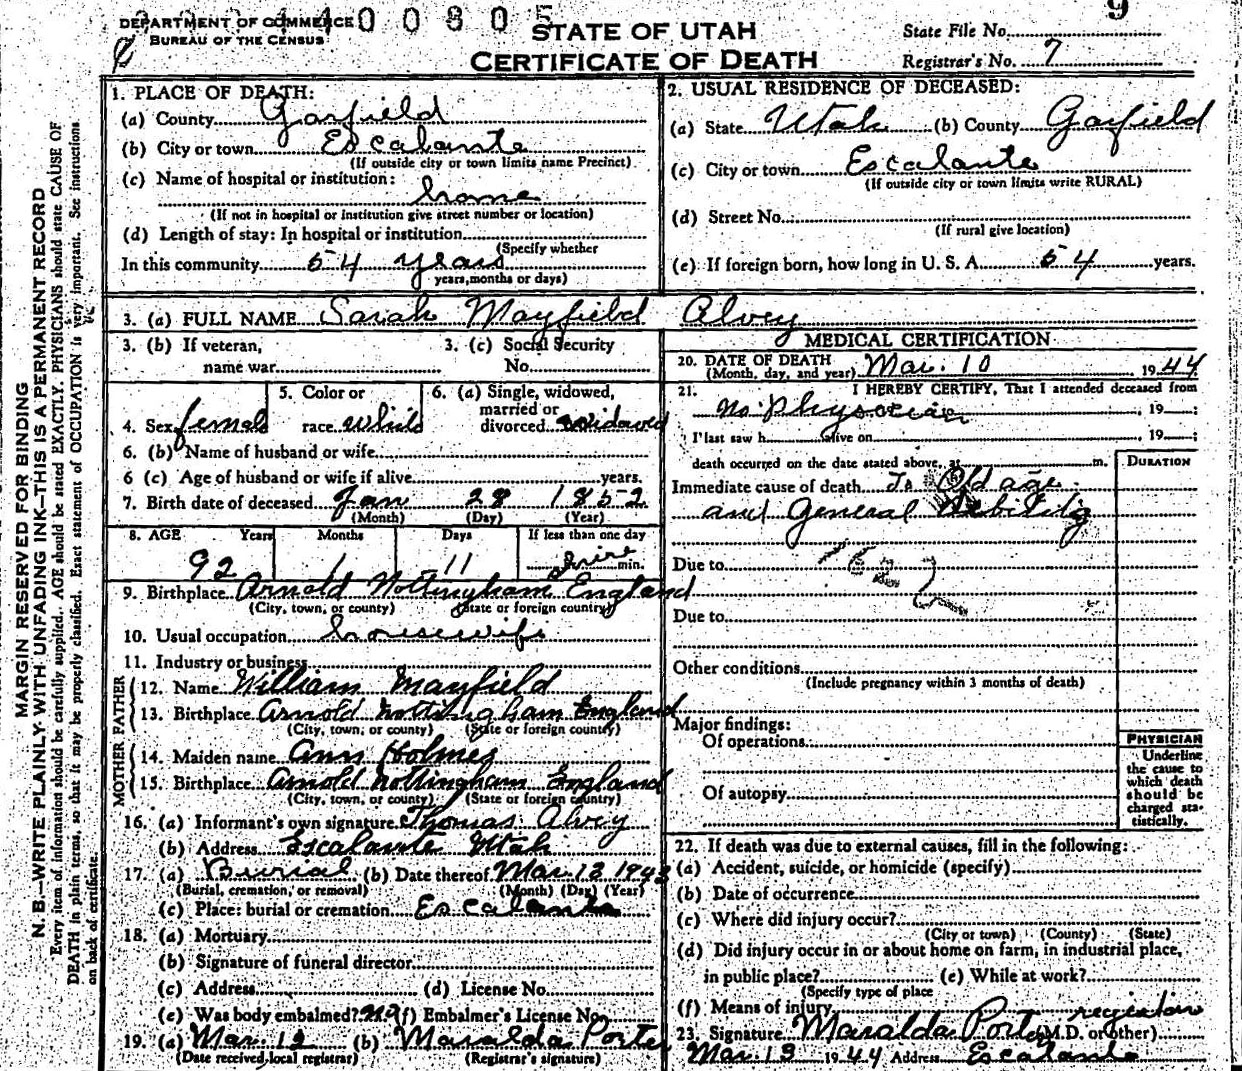 DEPARTMENT OF COMMERCE
BUREAU OF THE CENSUS
STATE OF UTAH
CERTIFICATE OF DEATH
9
State File No.
Registrar's No. 7
MARGIN RESERVED FOR BINDING
N. B.—WRITE PLAINLY WITH UNFADING INK—THIS IS A PERMANENT RECORD
Every item of information should be carefully supplied. AGE should be stated EXACTLY. PHYSICIANS should state CAUSE OF
DEATH in plain terms, so that it may be properly classified. Exact statement of OCCUPATION is very important. See instructions
on back of certificate.
1. PLACE OF DEATH:
(a) County Garfield
(b) City or town Escalante
(If outside city or town limits name Precinct)
(c) Name of hospital or institution:
home
(If not in hospital or institution give street number or location)
(d) Length of stay: In hospital or institution
(Specify whether
In this community 54 years
years, months or days)
2. USUAL RESIDENCE OF DECEASED:
(a) State Utah (b) County Garfield
(c) City or town Escalante
(If outside city or town limits write RURAL)
(d) Street No.
(If rural give location)
(e) If foreign born, how long in U. S. A. 54 years.
3. (a) FULL NAME Sarah Mayfield Alvey
3. (b) If veteran,
name war
3. (c) Social Security
No.
4. Sex female
5. Color or
race white
6. (a) Single, widowed,
married or
divorced widowed
6. (b) Name of husband or wife
6 (c) Age of husband or wife if alive years.
7. Birth date of deceased Jan 28 1852
(Month) (Day) (Year)
8. AGE Years Months Days If less than one day
92 1 11 min.
9. Birthplace Arnold Nottingham England
(City, town, or county) (State or foreign country)
10. Usual occupation housewife
11. Industry or business
FATHER
12. Name William Mayfield
13. Birthplace Arnold Nottingham England
(City, town, or county) (State or foreign country)
MOTHER
14. Maiden name Ann Holmes
15. Birthplace Arnold Nottingham England
(City, town, or county) (State or foreign country)
16. (a) Informant's own signature Thomas Alvey
(b) Address Escalante Utah
17. (a) Burial (b) Date thereof Mar. 12 1943
(Burial, cremation, or removal) (Month) (Day) (Year)
(c) Place: burial or cremation Escalante
18. (a) Mortuary
(b) Signature of funeral director
(c) Address (d) License No.
(e) Was body embalmed? no (f) Embalmer's License No.
19. (a) Mar. 12 (b) Maralda Porter
(Date received local registrar) (Registrar's signature)
MEDICAL CERTIFICATION
20. DATE OF DEATH
(Month, day, and year) Mar. 10 1944
21. I HEREBY CERTIFY, That I attended deceased from
no Physician , 19 ;
I last saw h alive on , 19 ;
death occurred on the date stated above, at m.
DURATION
Immediate cause of death Old age
and General Debility
Due to
1622
Due to
Other conditions
(Include pregnancy within 3 months of death)
Major findings:
Of operations
Of autopsy
PHYSICIAN
Underline
the cause to
which death
should be
charged sta-
tistically.
22. If death was due to external causes, fill in the following:
(a) Accident, suicide, or homicide (specify)
(b) Date of occurrence
(c) Where did injury occur?
(City or town) (County) (State)
(d) Did injury occur in or about home on farm, in industrial place,
in public place? (e) While at work?
(Specify type of place
(f) Means of injury
registrar
23. Signature Maralda Porter (M.D. or other)
Mar 13 1944 Address Escalante